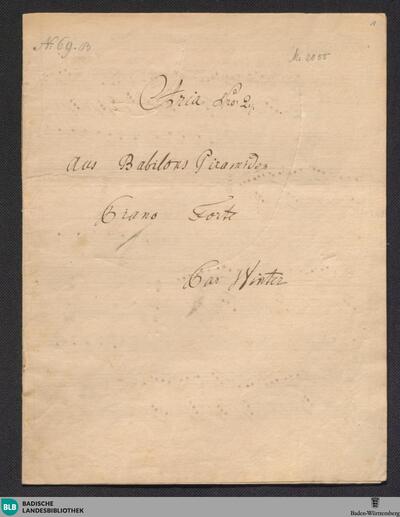 Nr 69. B
Ms. 2055
Aria Nro: 2.
Aus Babilons Piramiden
Piano Forte
Par Winter
BLB
BADISCHE
LANDESBIBLIOTHEK
Baden-Württemberg